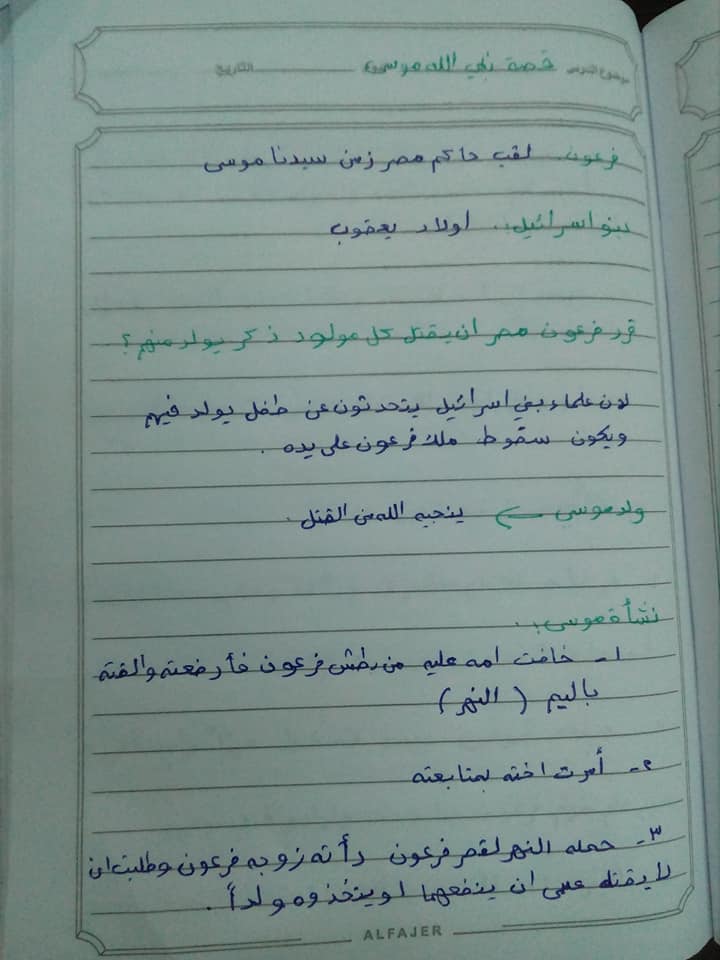 موضوع الدرس قصة نبي الله موسى التاريخ
فرعون.. لقب حاكم مصر زمن سيدنا موسى
بنو اسرائيل.. اولاد يعقوب
قرر فرعون مصر ان يقتل كل مولود ذكر يولد منهم؟
لان علماء بني اسرائيل يتحدثون عن طفل يولد فيهم
ويكون سقوط ملك فرعون على يده.
ولد موسى ← ينجيه الله من القتل.
نشأة موسى:.
١- خافت امه عليه من بطش فرعون فأرضعته والقته
باليم (النهر)
٢- أمرت اخته بمتابعته
٣- حمله النهر لقصر فرعون رأته زوجه فرعون وطلبت ان
لا يقتله عسى ان ينفعهما او يتخذوه ولداً.
ALFAJER